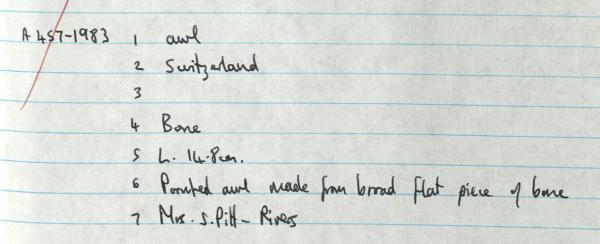 A 457-1983 1 awl
2 Switzerland
3
4 Bone
5 L. 14.8cm.
6 Pointed awl made from broad flat piece of bone
7 Mrs. S. Pitt-Rivers